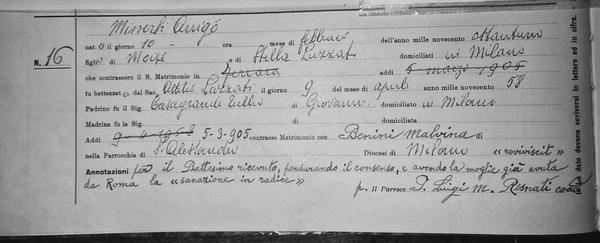 Minerbi Arrigo
N. 16
nat o il giorno 10 ora mese di febbraio dell'anno mille novecento ottantuno
figlio di Moisè e di Stella Luzzati domiciliati in Milano
che contrassero il S. Matrimonio in Ferrara addì 5 marzo 1905
fu battezzato dal Sac. Attilio Luzzati il giorno 9 del mese di aprile anno mille novecento 58
Padrino fu il Sig. Casagrande Tullio di Giovanni domiciliato in Milano
Madrina fu la Sig. di domiciliata
Addì 9-4-1958 5-3-905 contrasse Matrimonio con Benini Malvina di
nella Parrocchia di S. Alessandro Diocesi di Milano "reviviscit"
Annotazioni per il Battesimo ricevuto, perdurando il consenso, e avendo la moglie già avuta
da Roma la «sanazione in radice»
p. Il Parroco P. Luigi M. Resnati
le date devono scriversi in lettere ed in cifre.